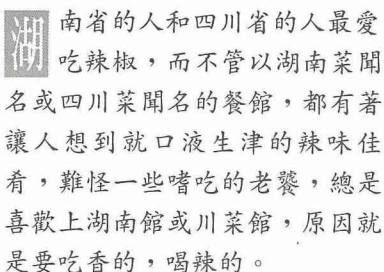 湖南省的人和四川省的人最愛
吃辣椒，而不管以湖南菜聞
名或四川菜聞名的餐館，都有著
讓人想到就口液生津的辣味佳
肴，難怪一些嗜吃的老饕，總是
喜歡上湖南館或川菜館，原因就
是要吃香的，喝辣的。